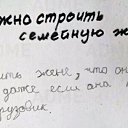 жно строить
семейную ж
ить жене, что он
даже если она
рузовик.